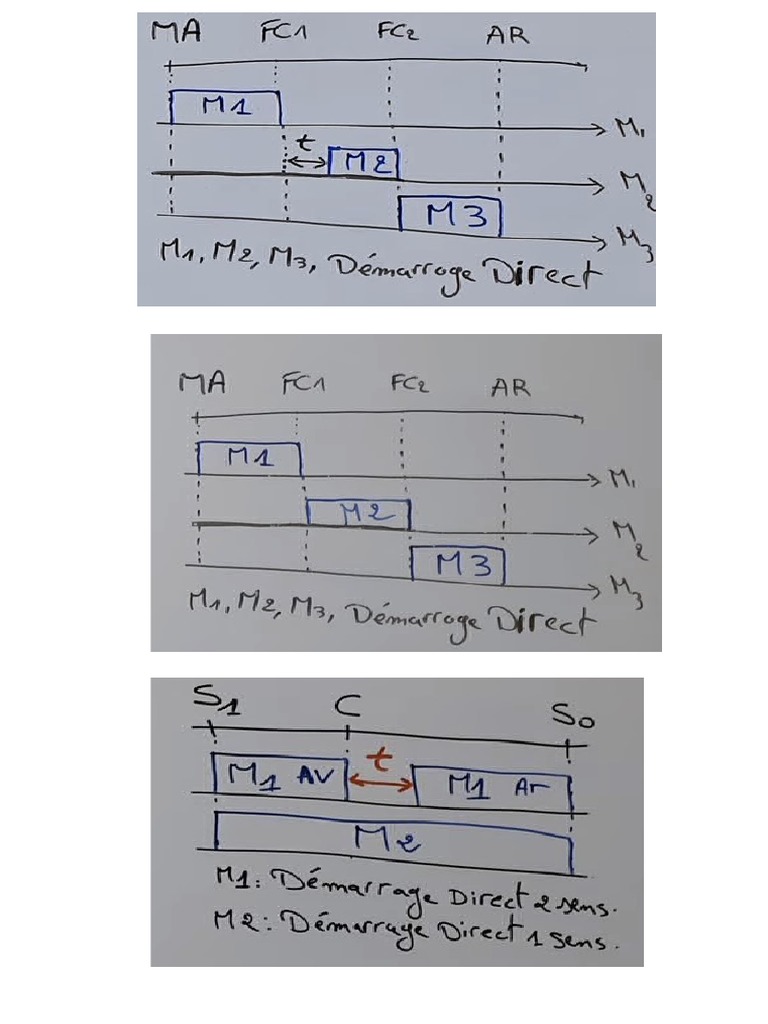 MA FC1 FC2 AR
M1
M1
t
M2
M2
M3
M3
M1, M2, M3, Démarrage Direct
MA FC1 FC2 AR
M1
M1
M2
M2
M3
M3
M1, M2, M3, Démarrage Direct
S1 C S0
M1 AV t M1 Ar
M2
M1: Démarrage Direct 2 sens.
M2: Démarrage Direct 1 sens.